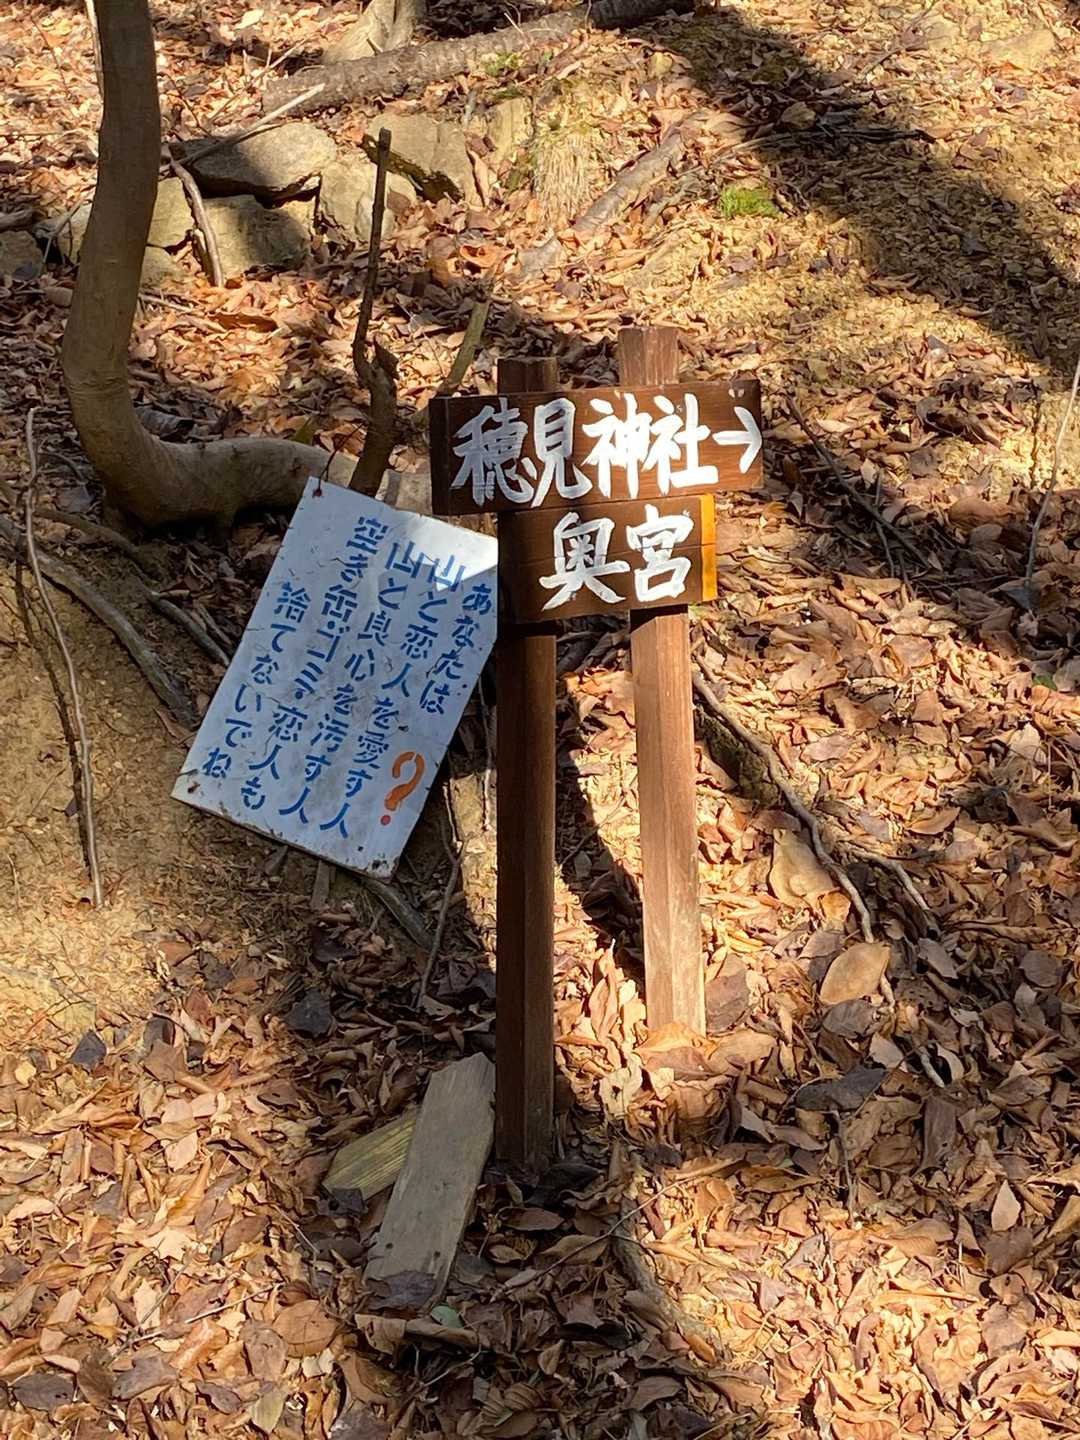 穂見神社→
奥宮
あなたは
山と恋人を愛す人
山と良心を汚す人
?
空き缶・ゴミ・恋人も
捨てないでね